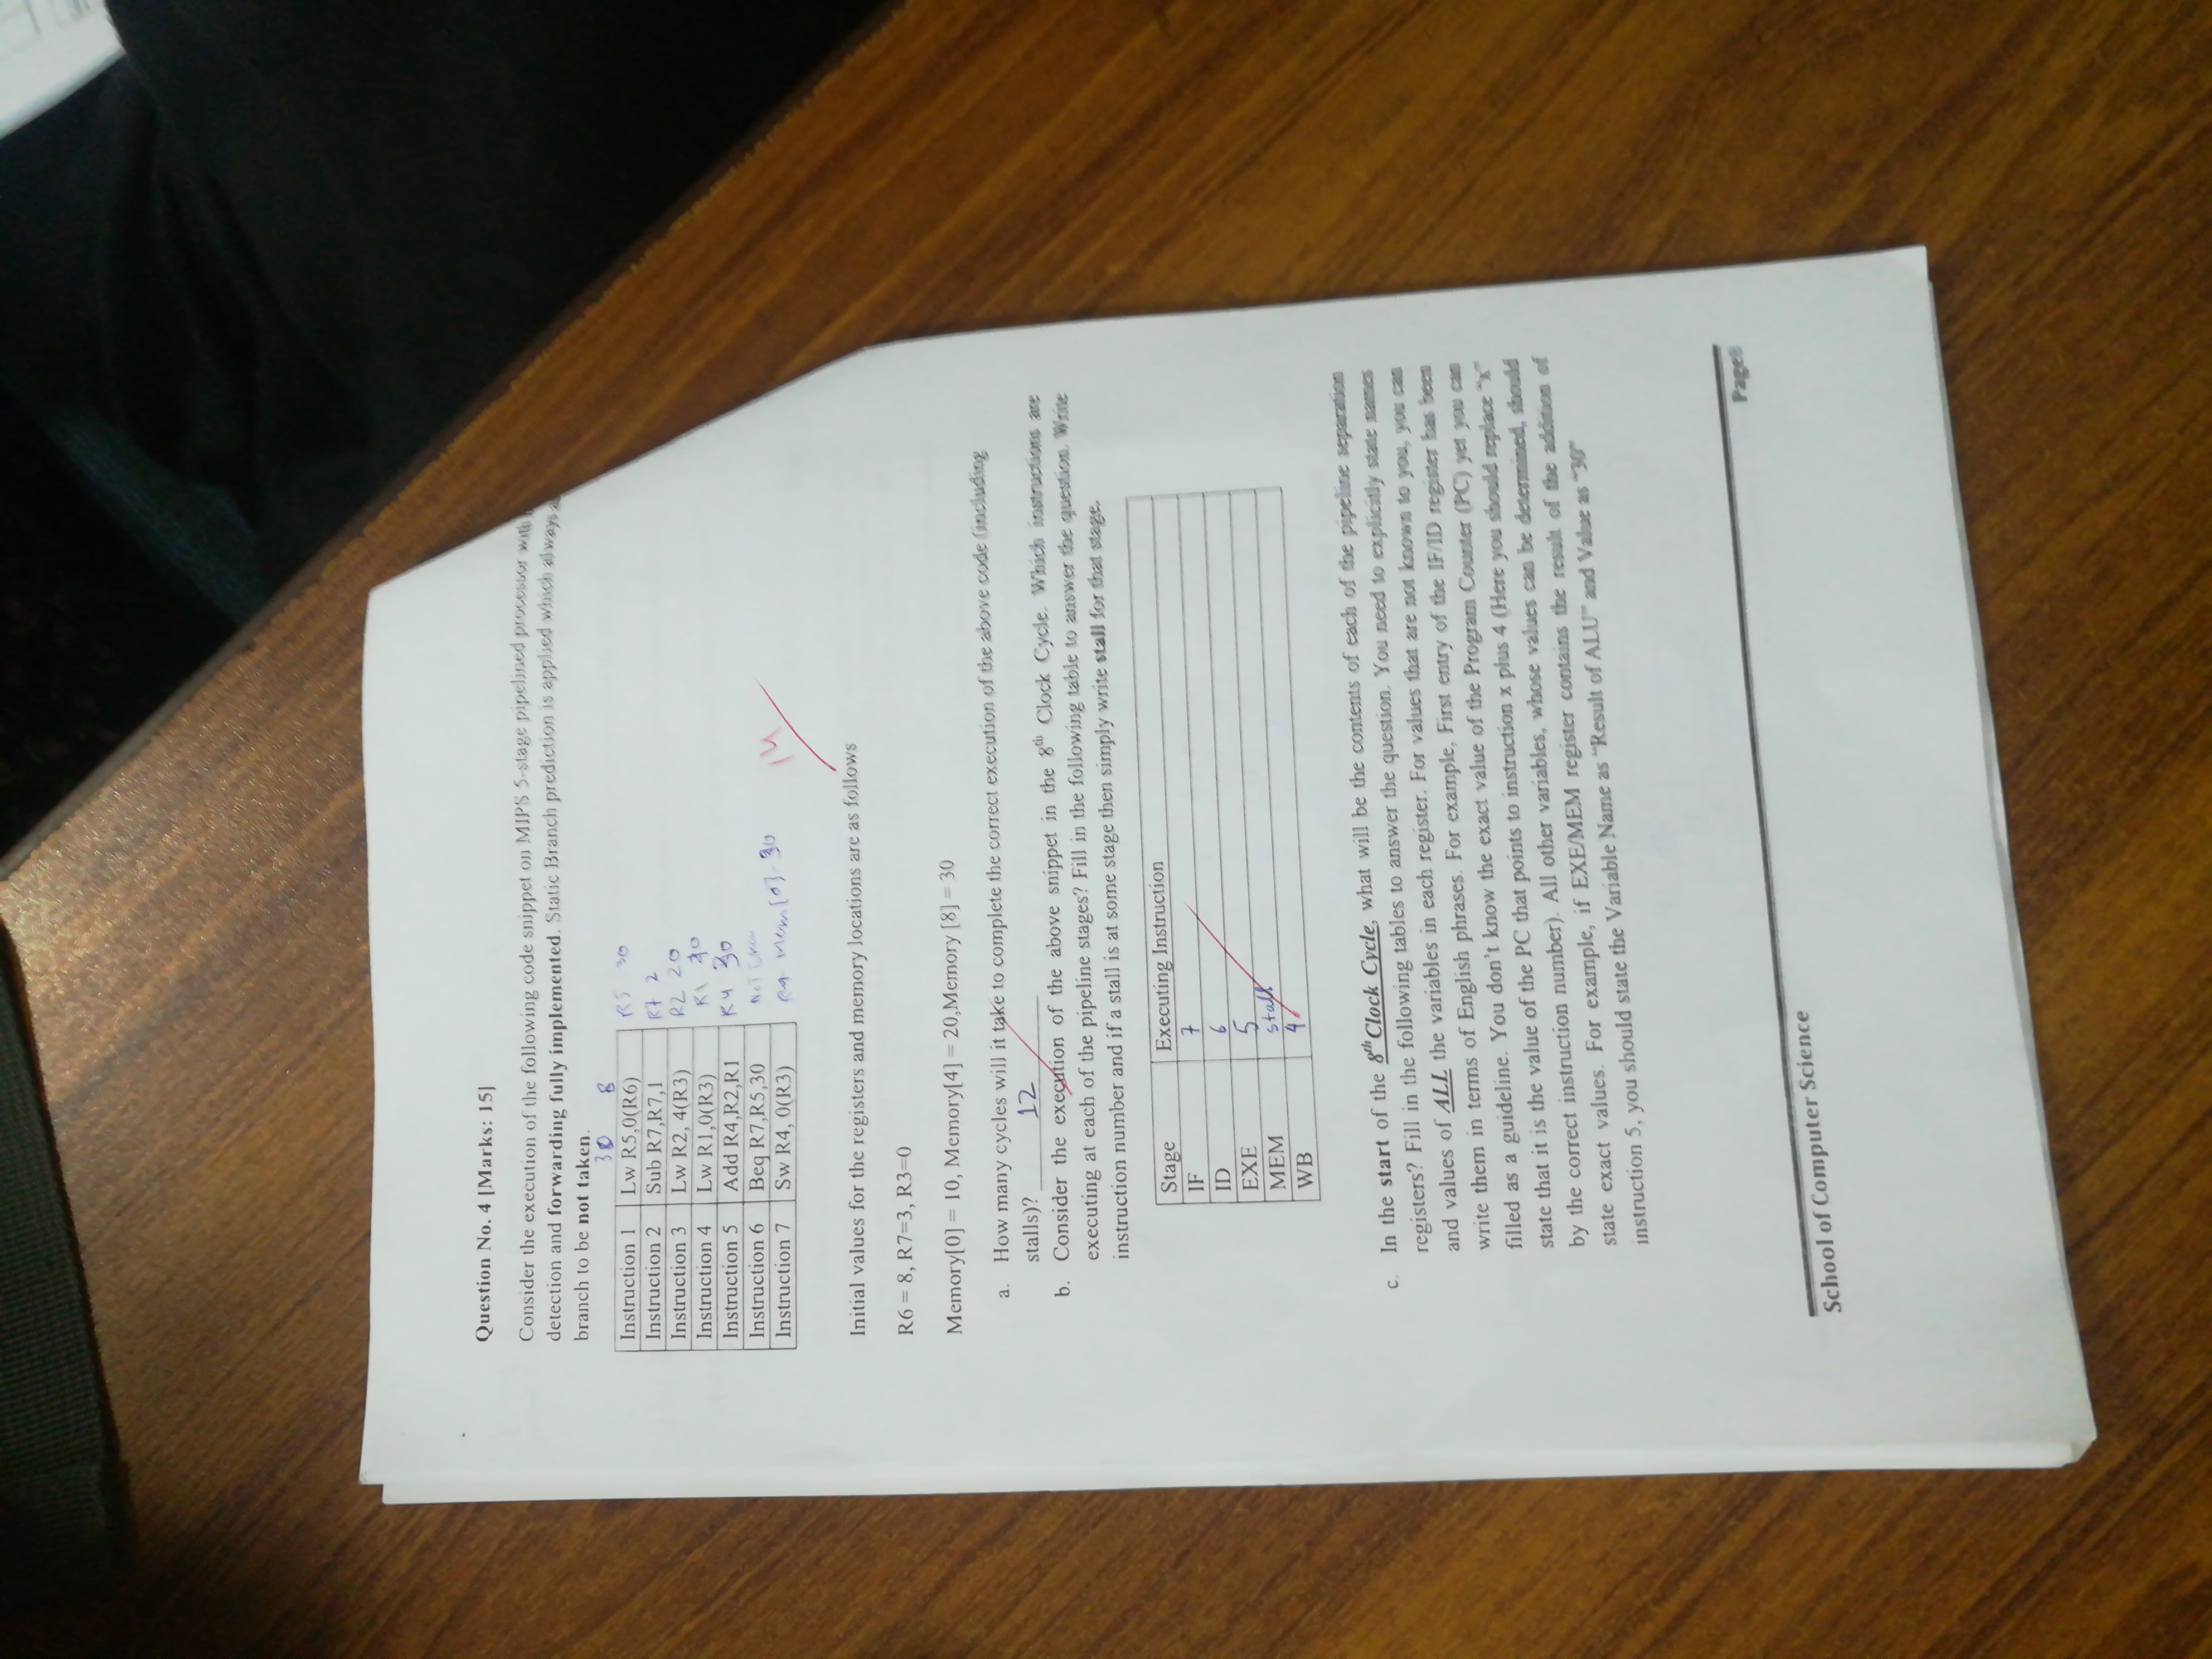 Question No. 4 [Marks: 15]
Consider the execution of the following code snippet on MIPS 5-stage pipelined processor with
detection and forwarding fully implemented. Static Branch prediction is applied which always
branch to be not taken.
30 8
Instruction 1 Lw R5,0(R6) R5 30
Instruction 2 Sub R7,R7,1 R7 2
Instruction 3 Lw R2, 4(R3) R2 20
Instruction 4 Lw R1,0(R3) R1
Instruction 5 Add R4,R2,R1 R4 30
Instruction 6 Beq R7,R5,30 Not
Instruction 7 Sw R4, 0(R3) Mem[0]-30
14
Initial values for the registers and memory locations are as follows
R6 = 8, R7=3, R3=0
Memory[0] = 10, Memory[4] = 20,Memory [8] = 30
a. How many cycles will it take to complete the correct execution of the above code (including
stalls)? 12
b. Consider the execution of the above snippet in the 8th Clock Cycle. Which instructions are
executing at each of the pipeline stages? Fill in the following table to answer the question. Write
instruction number and if a stall is at some stage then simply write stall for that stage.
Stage Executing Instruction
IF 7
ID 6
EXE 5
MEM stall
WB 4
c. In the start of the 8th Clock Cycle, what will be the contents of each of the pipeline separation
registers? Fill in the following tables to answer the question. You need to explicitly state names
and values of ALL the variables in each register. For values that are not known to you, you can
write them in terms of English phrases. For example, First entry of the IF/ID register has been
filled as a guideline. You don't know the exact value of the Program Counter (PC) yet you can
state that it is the value of the PC that points to instruction x plus 4 (Here you should replace "x"
by the correct instruction number). All other variables, whose values can be determined, should
state exact values. For example, if EXE/MEM register contains the result of the addition of
instruction 5, you should state the Variable Name as "Result of ALU" and Value as "30"
Page
School of Computer Science